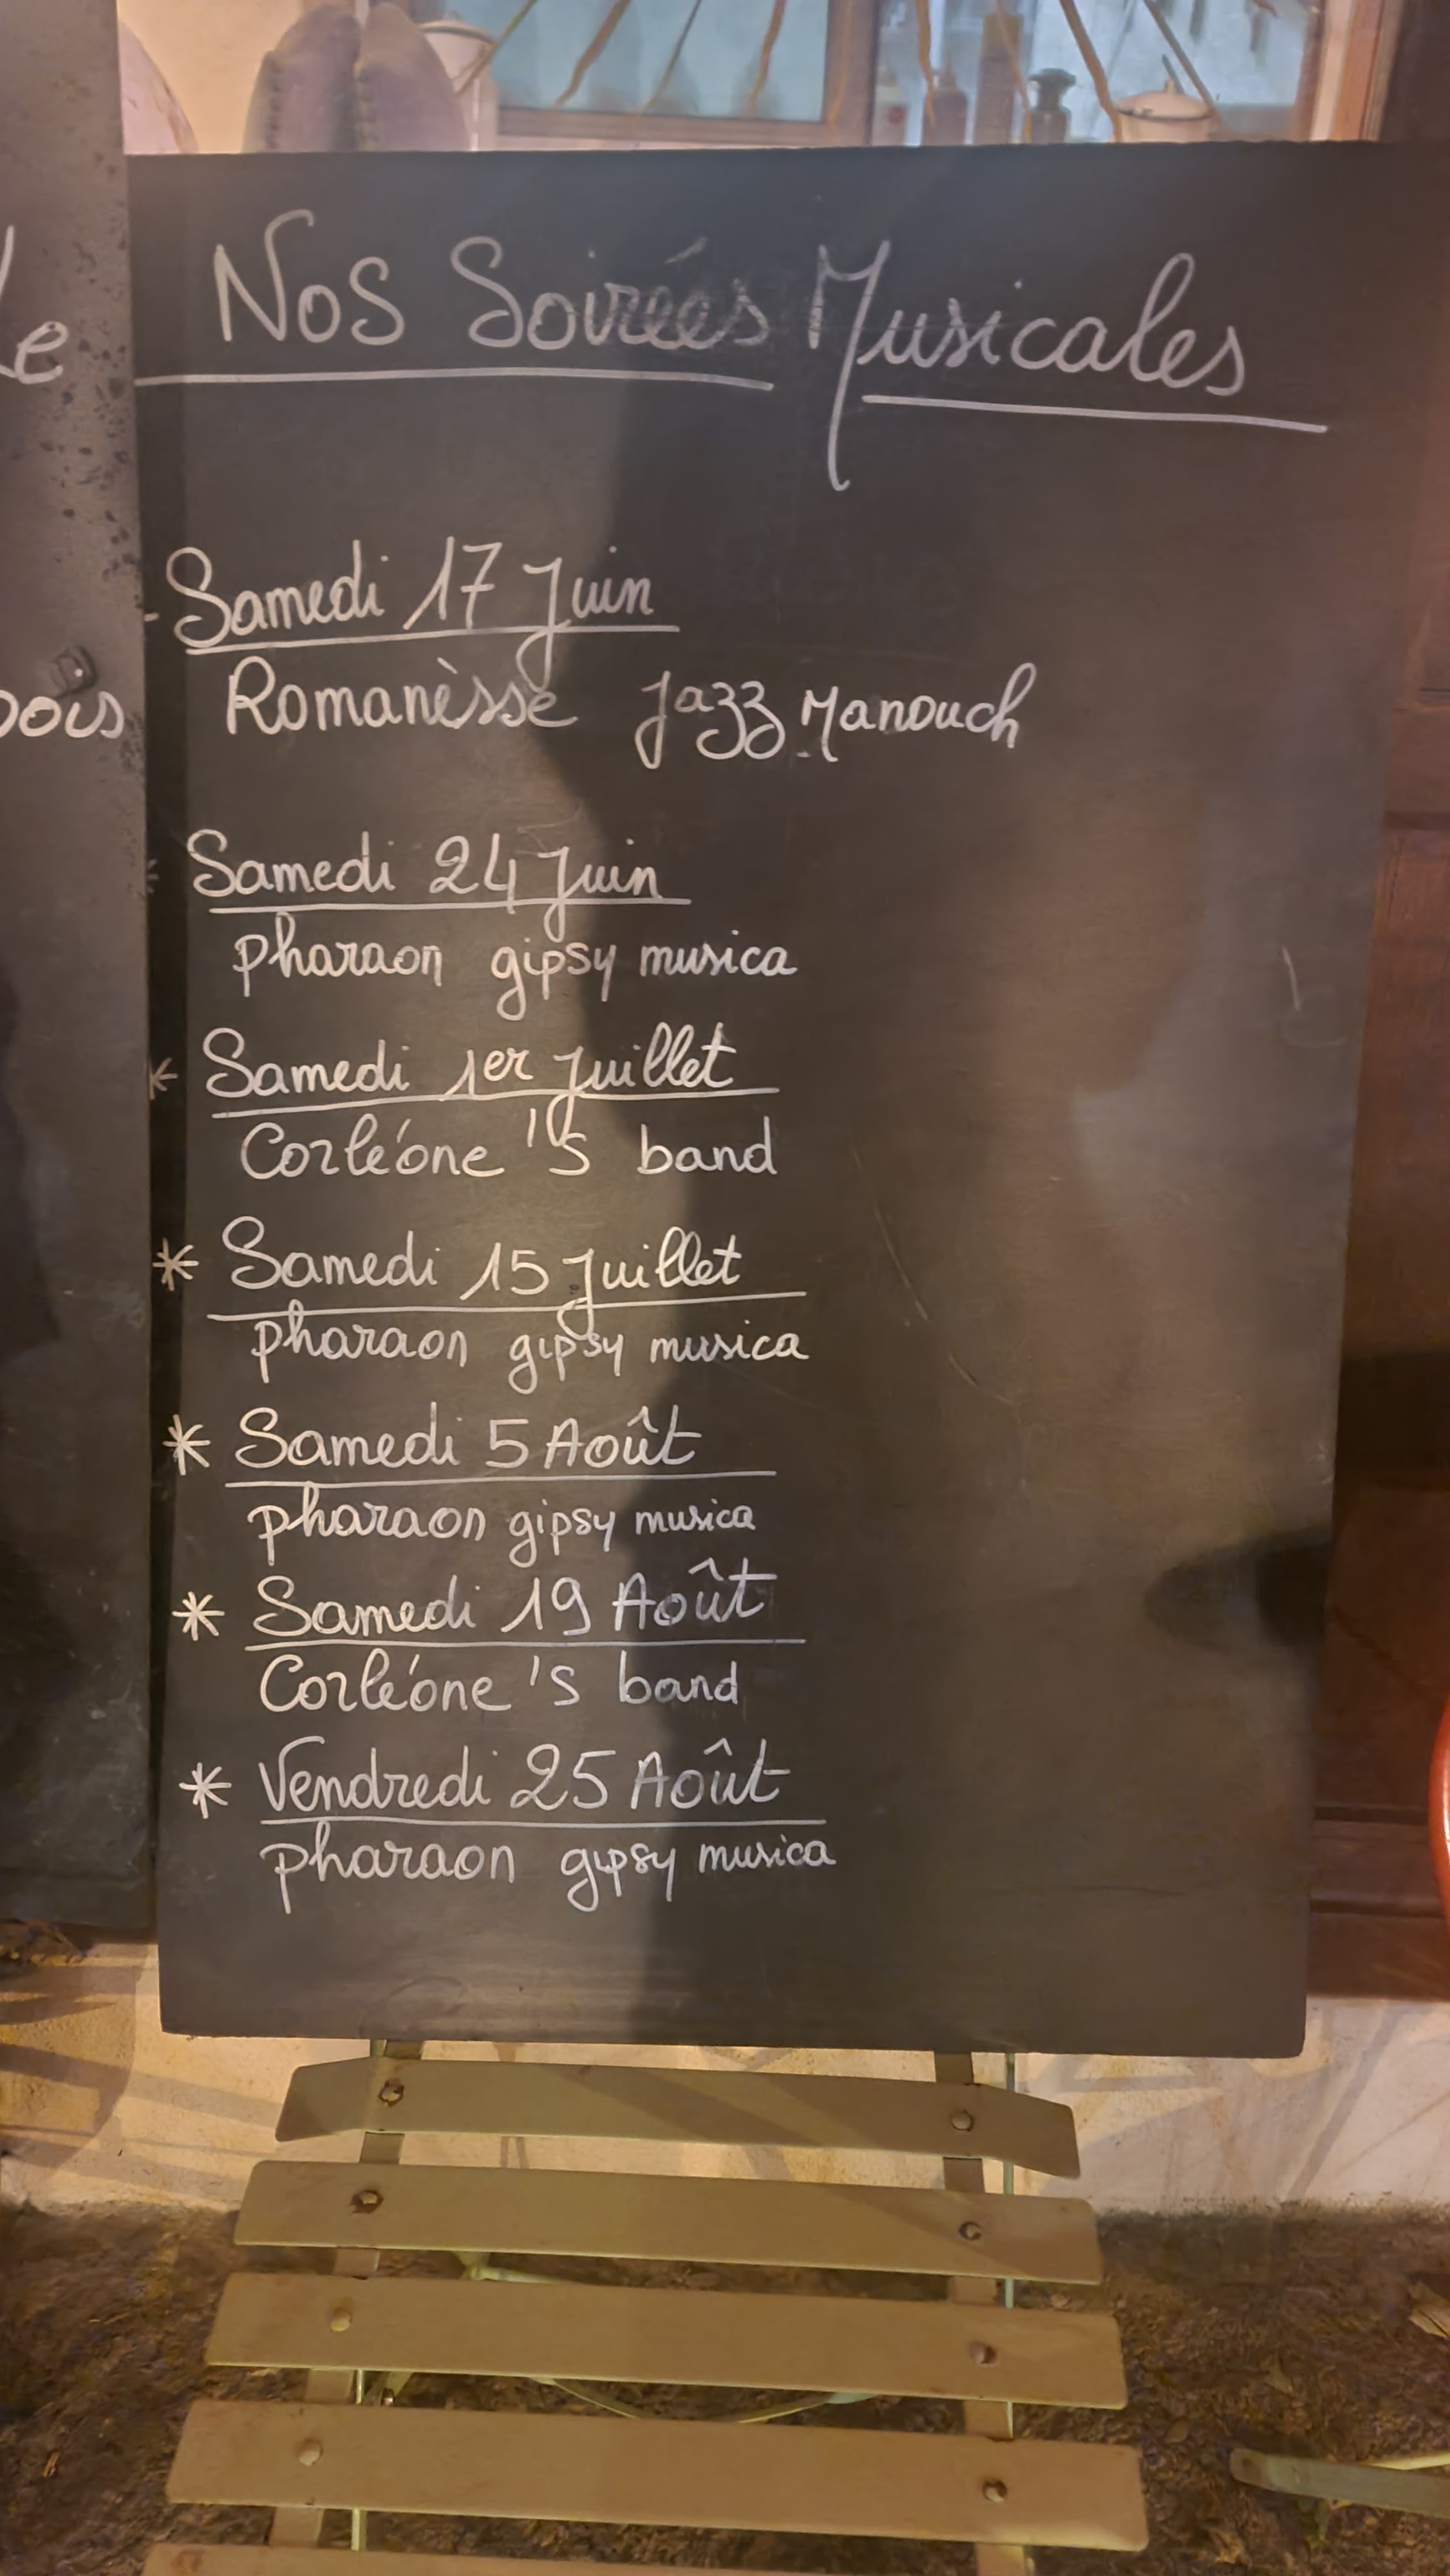 Nos Soirées Musicales
- Samedi 17 Juin
Romanèsse Jazz Manouch
* Samedi 24 Juin
pharaon gipsy musica
* Samedi 1er Juillet
Corléone 's band
* Samedi 15 Juillet
pharaon gipsy musica
* Samedi 5 Août
pharaon gipsy musica
* Samedi 19 Août
Corléone 's band
* Vendredi 25 Août
pharaon gipsy musica